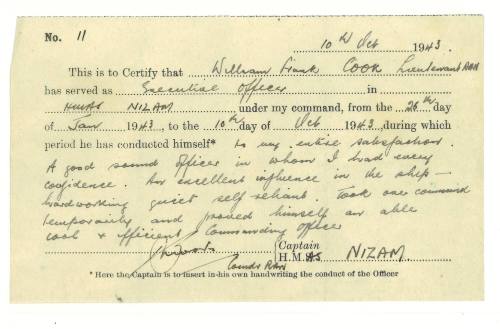 No. 11
10th Oct 1943.
This is to Certify that William Frank COOK Lieutenant RAN
has served as Executive Officer in
HMAS NIZAM under my command, from the 26th day
of Jan 1943, to the 10th day of Oct 1943, during which
period he has conducted himself* to my entire satisfaction.
A good sound officer in whom I had every
confidence. An excellent influence in the ship -
hardworking quiet self reliant. Took over command
temporarily and proved himself an able
cool & efficient Commanding Officer
Captain
Comdr RAN H.M.AS NIZAM.
*Here the Captain is to insert in his own handwriting the conduct of the Officer